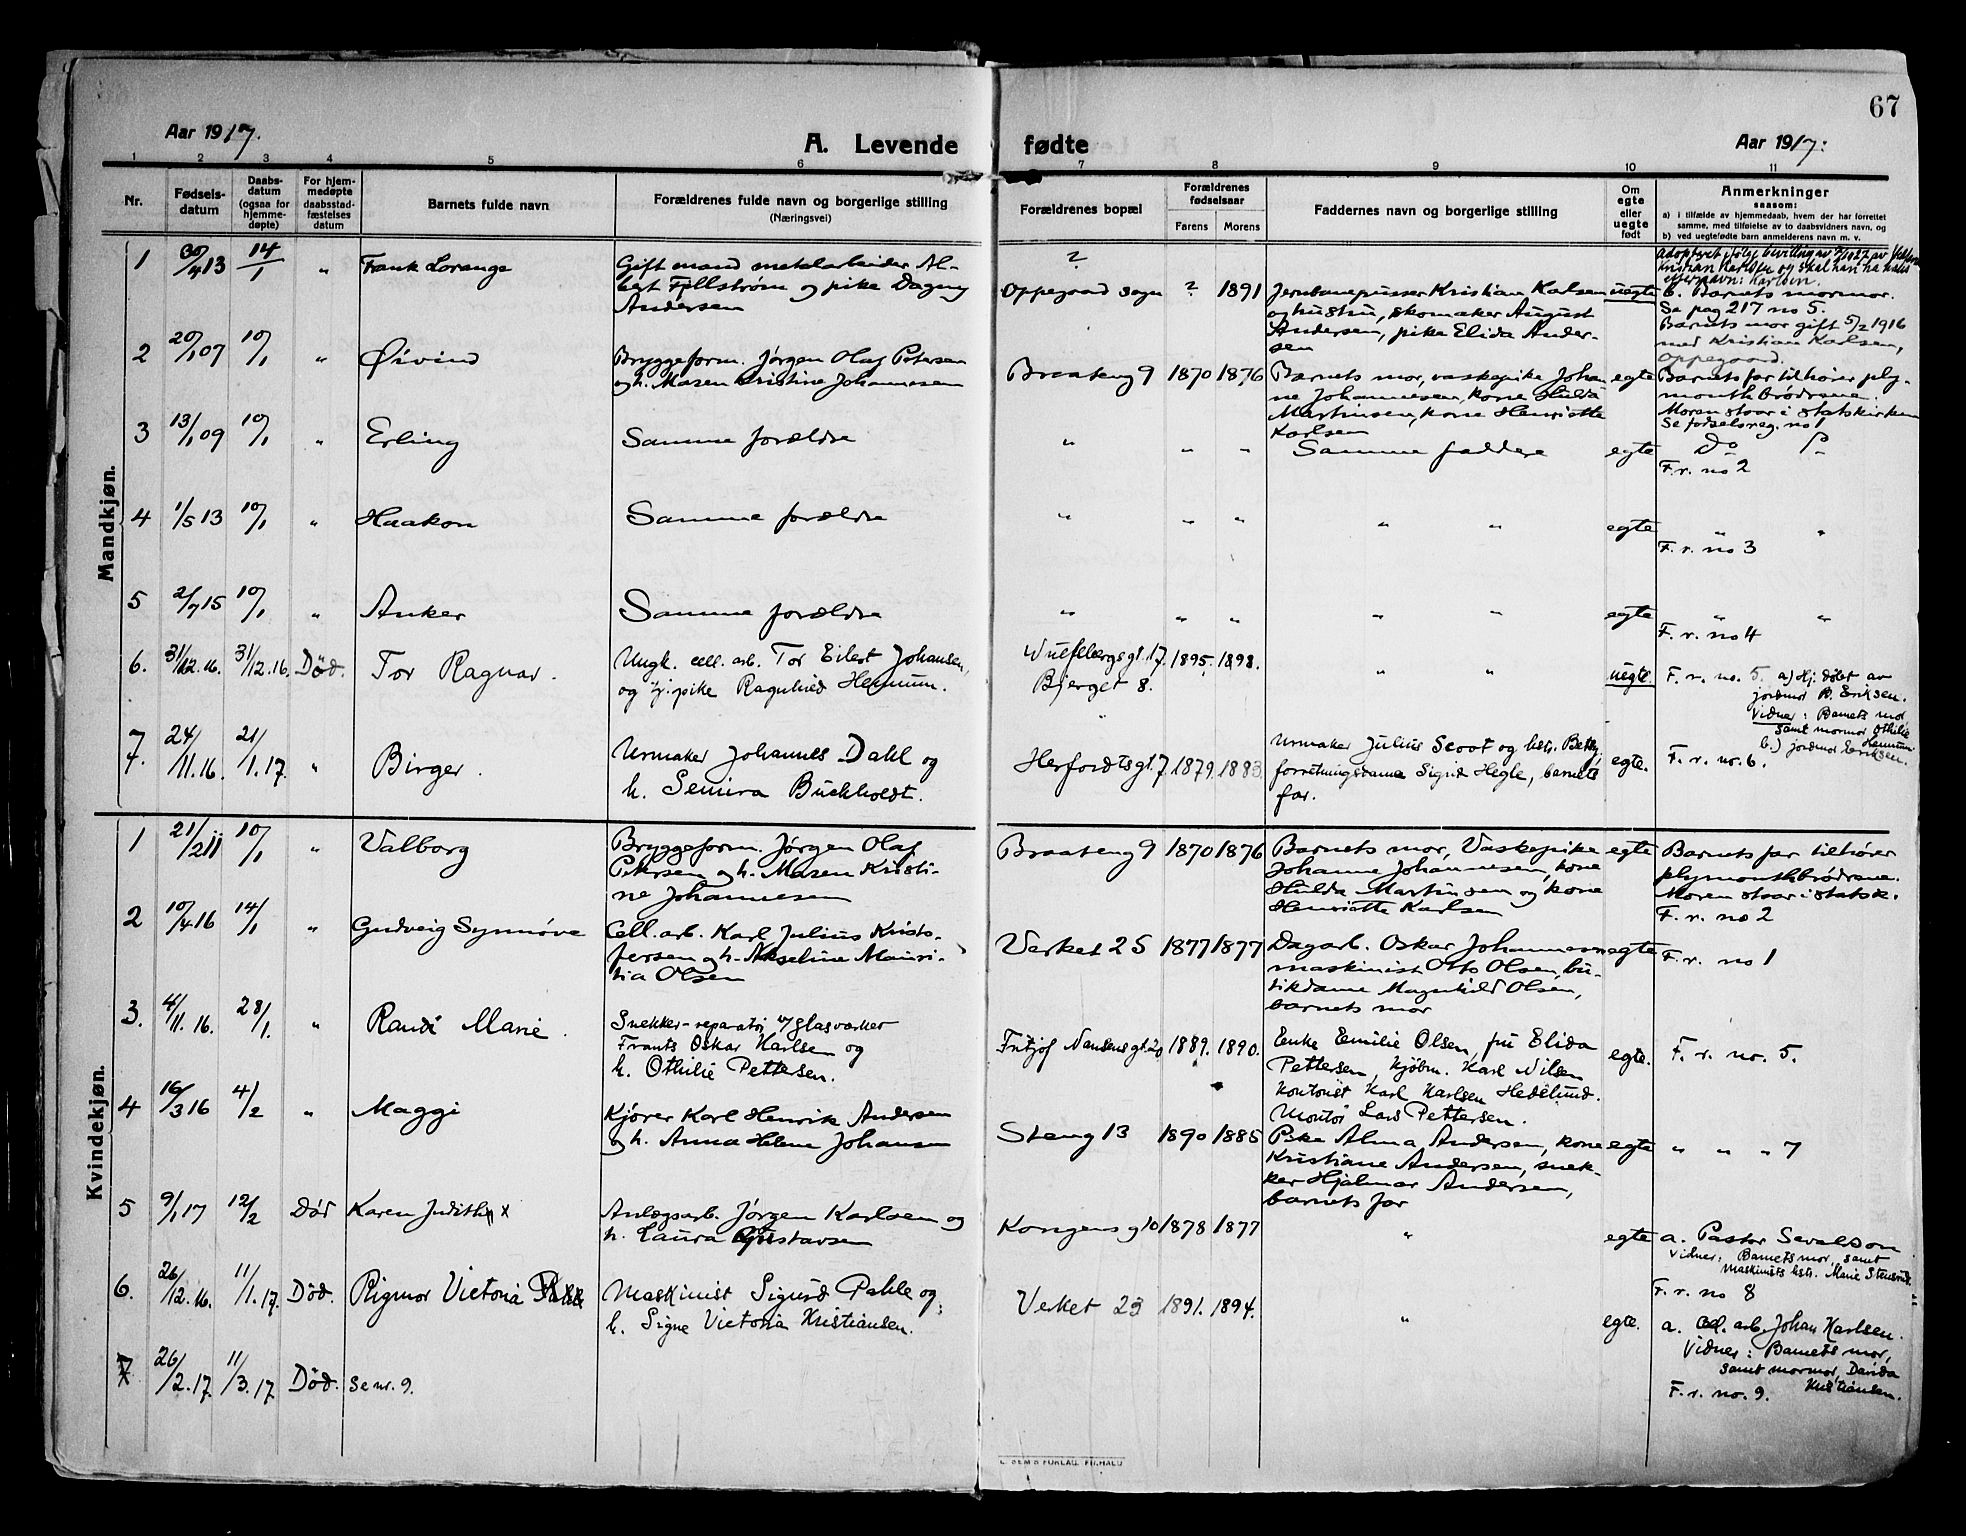 67
Aar 1917.
A. Levende fødte
Aar 1917.
1 2 3 4 5 6 7 8 9 10 11
Nr.
Fødsels-
datum
Daabs-
datum
(ogsaa for
hjemme-
døpte)
For hjem-
medøpte
daabsstad-
fæstelses
datum
Barnets fulde navn
Forældrenes fulde navn og borgerlige stilling
(Næringsvei)
Forældrenes bopæl
Forældrenes
fødselsaar
Farens Morens
Faddernes navn og borgerlige stilling
Om
egte
eller
uegte
født
Anmerkninger
saasom:
a) i tilfælde av hjemmedaab, hvem der har forrettet
samme, med tilføielse av to daabsvidners navn, og
b) ved uegtefødte barn anmelderens navn m. v.
Mandkjøn.
1 30/4 13 14/1 " Frank Lorange
Gift mand metalarbeider Al-
bert Fjellstrøm og pike Dagny
Andersen
?
Oppegaard sogn ? 1891
Jernbanepusser Kristian Karlsen
og hustru, skomaker August
Andersen, pike Elida Ander-
sen
uegte
Adoptert ifølg bevilling av
Kristian Karlsen og skal han ha
efternavn: Karlsen.
b. Barnets mormor.
Se pag 217 no 5.
Barnets mor gift 5/2 1916
med Kristian Karlsen,
Oppegaard.
2 20/1 07 10/1 " Øivind
Bryggeform. Jørgen Olaf Petersen
og h. Maren Kristine Johannesen
Braateng 9 1870 1876
Barnets mor, vaskepike Johan-
ne Johannesen, kone Hulda
Martinsen, kone Henriette
Karlsen
egte
Barnets far tilhører ply-
mouthbrødrene.
Moren staar i statskirken
Se fødselsreg. no 1
3 13/1 09 10/1 " Erling
Samme forældre
" " "
Samme faddere
egte
Do
F. r. no 2
4 1/5 13 10/1 " Haakon
Samme forældre
" " " " "
egte
" "
F. r. no 3
5 2/7 15 10/1 " Anker
Samme forældre
" " " " "
egte
" "
F. r. no 4
6. 31/12.16. 31/12.16. Död. Tor Ragnar.
Ungk. cell. arb. Tor Eilert Johansen,
og tj. pike Ragnhild Hennum.
Wulfsbergsgt. 17. 1895. 1898.
Bjerget 8.
" "
uegte.
F. r. no. 5. a) Hj. døbt av
jordmor B. Eriksen.
Vidner: Barnets mor,
samt mormor Othilie
Hennum
b.) jordmor Eriksen.
7. 24/11.16. 21/1.17. " Birger.
Urmaker Johannes Dahl og
h. Semira Buckholdt.
Herfordtsgt. 7. 1879. 1883.
Urmaker Julius Scoot og hstr. Betty,
forretningsdame Sigrid Hegle, barnets
far.
egte.
F. r. no. 6.
Kvindekjøn.
1 21/2 11 10/1 " Valborg
Bryggeform. Jørgen Olaf
Petersen og h. Maren Kristi-
ne Johannesen
Braateng 9 1870 1876
Barnets mor, Vaskepike
Johanne Johannesen, kone
Hulda Martinsen og kone
Henriette Karlsen
egte
Barnets far tilhører
plymouthbrødrene.
Moren staar i statsk.
F. r. no 2
2 10/4 16 14/1 " Gudveig Synnøve
Cell. arb. Karl Julius Kristo-
fersen og h. Akseline Mauri-
tia Olsen
Verket 25 1877 1877
Dagarb. Oskar Johannesen
maskinist Otto Olsen, bu-
tikdame Magnhild Olsen,
barnets mor
egte
F. r. no 1
3. 4/11.16. 28/1. " Randi Marie.
Snekker-reparatør v/glasverket
Frants Oskar Karlsen og
h. Othilie Pettersen.
Fritjof Nansens gt. 20 1889. 1890.
Enke Emilie Olsen, fru Elida
Pettersen, kjøbm. Karl Nilsen
kontorist Karl Karlsen Hedslund.
Montør Lars Pettersen.
egte.
F. r. no. 5.
4 16/3 16 4/2 " Maggi
Kjører Karl Henrik Andersen
og h. Anna Helene Johansen
Steng 13 1890 1885
Pike Alma Andersen, kone
Kristiane Andersen, snek-
ker Hjalmar Andersen,
barnets far
egte
" " " 7
5 9/1 17 12/2 Död Karen Judith x
Anlægsarb. Jørgen Karlsen og
h. Laura Gustavsen
Kongensg 10 1878 1877
"
egte
a. Pastor Sevaldson
Vidner: Barnets mor, samt
maskinists hstr. Marie Stensrud.
F. r. no 8
6. 26/12.16. 11/1.17. Död. Rigmor Victoria
Maskinist Sigurd Pahle og
h. Signe Victoria Kristiansen.
Verket 23 1891. 1894.
"
egte.
a. Cel. arb. Johan Karlsen.
Vidner: Barnets mor,
samt mormor, Davida
Kristiansen.
F. r. no. 9.
7 26/2.17. 11/3.17 Död. Se nr. 9.
E. SEM'S FORLAG, FR.HALD